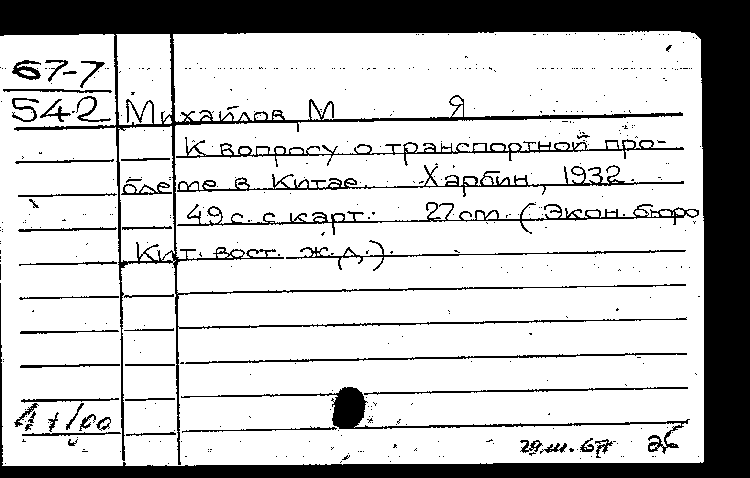 67-7
542 Михайлов, М Я
К вопросу о транспортной про-
блеме в Китае. Харбин, 1932.
49 с. с карт. 27 cm. (Экон. бюро
Кит. вост. ж.д.).
29.III.67